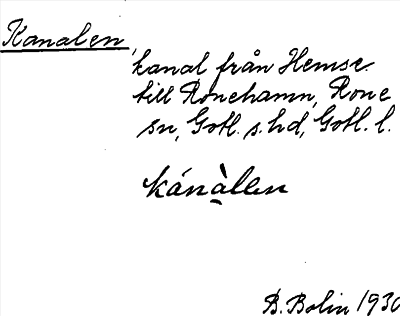 Kanalen,
kanal från Hemse
till Ronehamn, Rone
sn, Gotl. s. hd, Gotl. l.
kánàllen
B. Bolin 1930